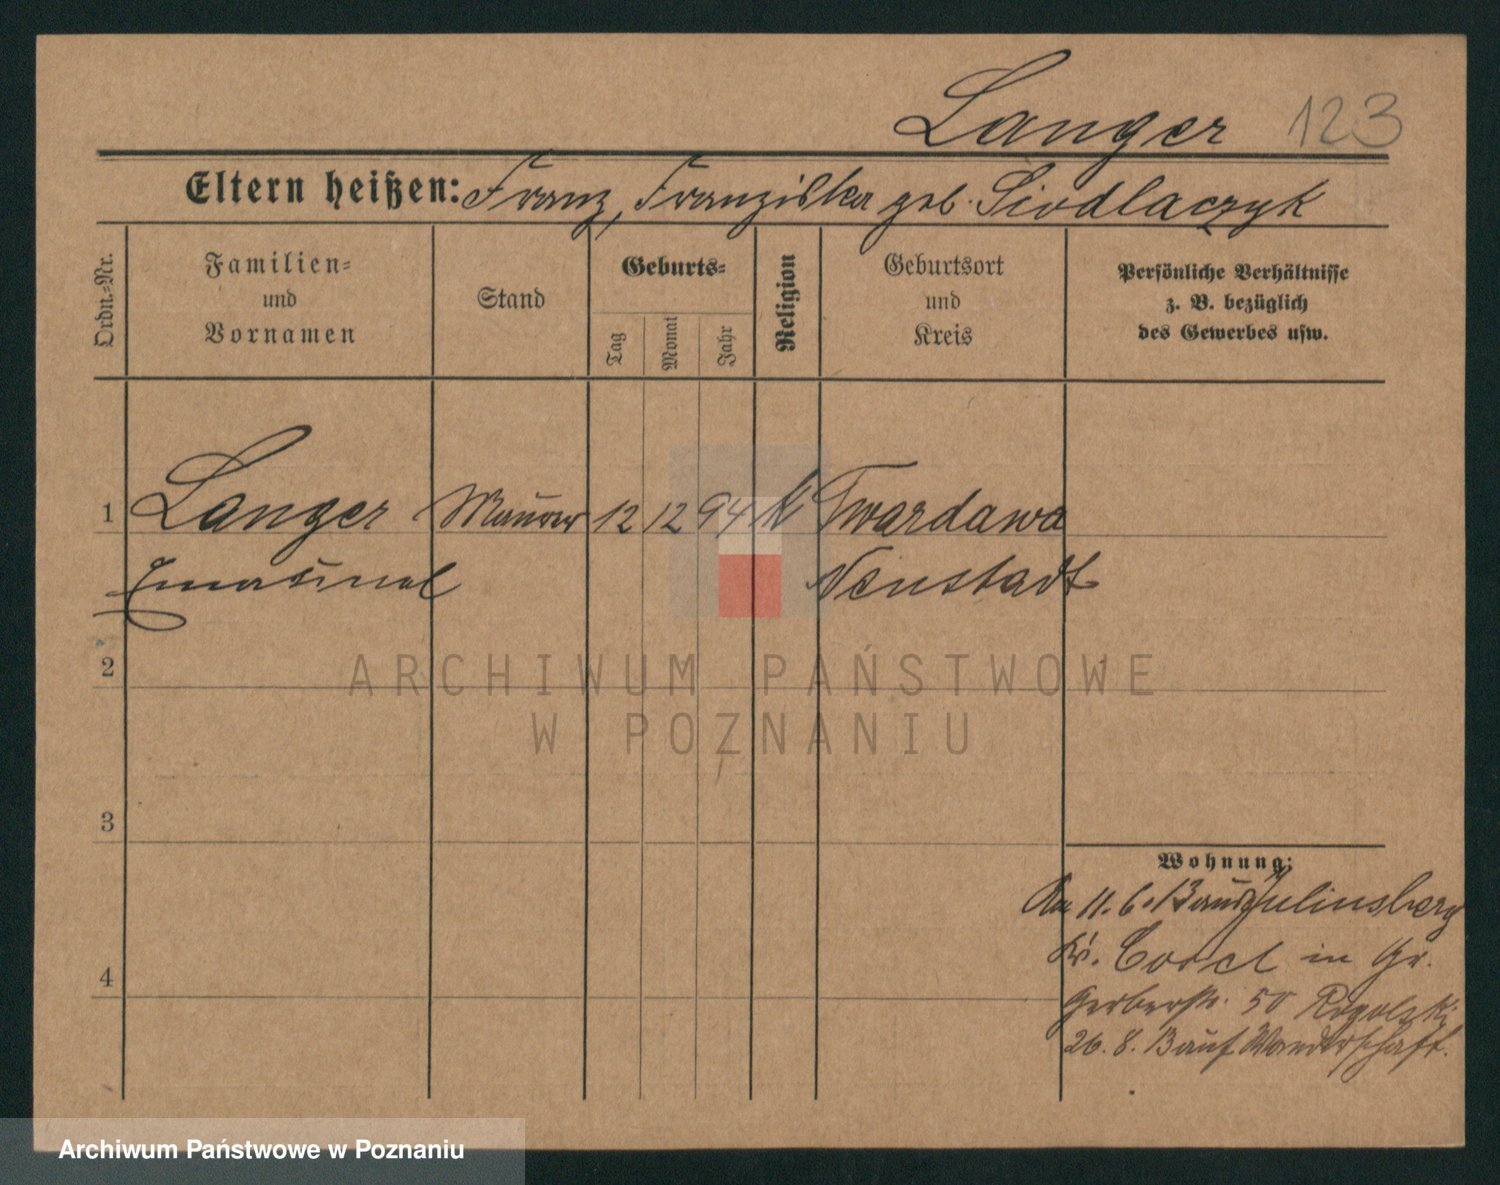 Langer 123
Eltern heißen: Franz, Franziska geb. Siodlaczyk
Ordn.-Nr.
Familien-
und
Vornamen
Stand
Geburts-
Tag
Monat
Jahr
Religion
Geburtsort
und
Kreis
Persönliche Verhältnisse
z. B. bezüglich
des Gewerbes usw.
1 Langer Maurer 12 12 94 k Twardawa
Emanuel Neustadt
2
ARCHIWUM PAŃSTWOWE
W POZNANIU
3
Wohnung:
Am 11. 6. 13 aus Juliusberg
Kr. Cosel in Gr.
Gerberstr. 50
26. 8. 13 auf Wanderschaft.
4
Archiwum Państwowe w Poznaniu